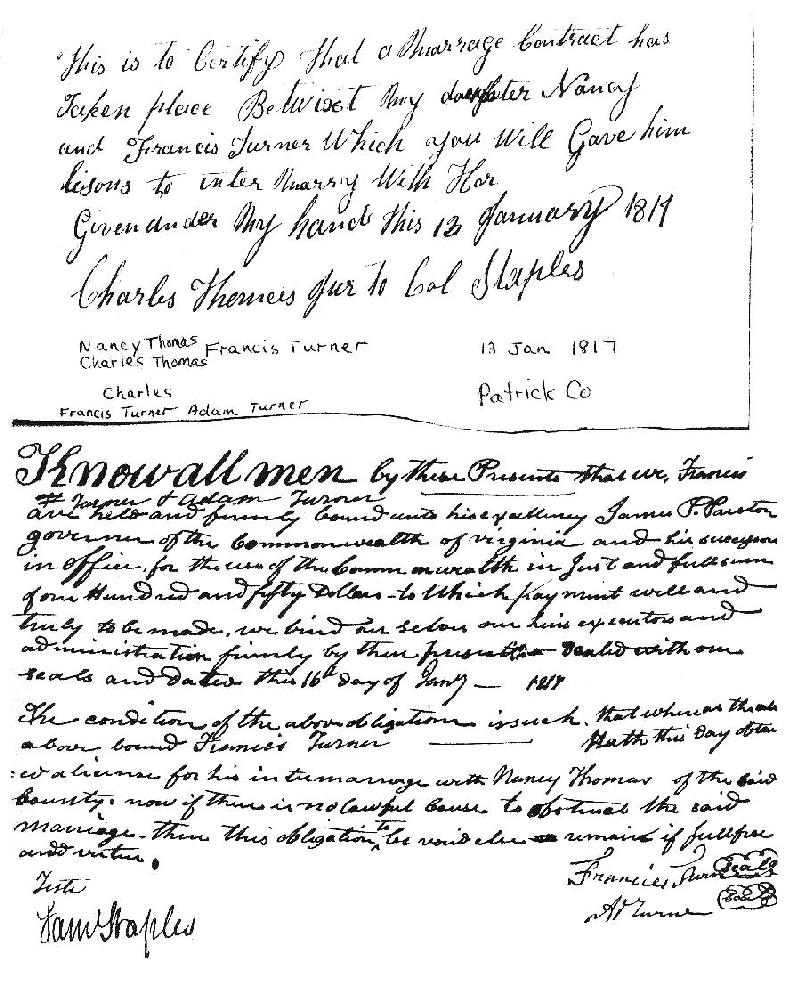 This is to Certify That a Marrage Contract has
Taken place Betwixt My daughter Nancy
and Francis Turner Which you Will Gave him
lisons to inter Marry With Har
Given under My hand this 13 January 1817
Charles Thomas Jur to Col Staples
Nancy Thomas Francis Turner 13 Jan 1817
Charles Thomas
Charles Patrick Co
Francis Turner Adam Turner
Know all men by these Presents that we, Francis
Turner & Adam Turner
are held and firmly bound unto his excellency James P. Preston
governor of the Commonwealth of virginia and his successors
in office, for the use of the Commonwealth in Just and full sum
of one Hundred and fifty Dollars to Which payment will and
truly to be made, we bind our selves our heirs executors and
administration firmly by these presents Sealed with our
seals and dated this 16th day of Jany 1817
The condition of the above obligation is such, that whereas the
above bound Francis Turner Hath this Day obtain
ed a license for his intermarriage with Nancy Thomas of the said
County, now if there is no lawful Cause to obstruct the said
marriage then this obligation to be void else remain if full force
and virtue.
Teste
Sam Staples
Francis Turner Seal
Ad Turner Seal